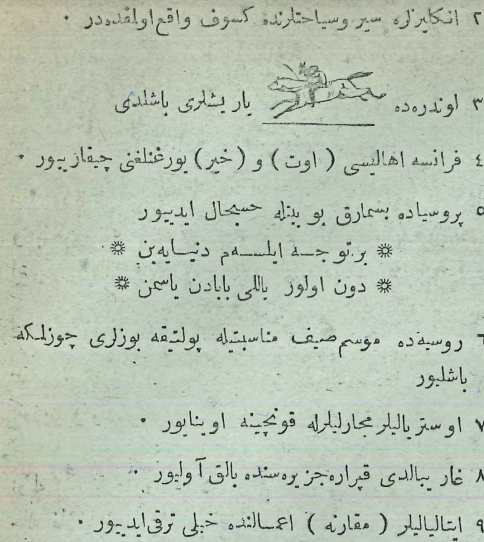 ٢ انكليزلره سير وسياحتلرنده كسوف واقع اولمقده در ٠
٣ اوندره ده يار يشلرى باشلدى
٤ فرانسه اهاليسى ( اوت ) و ( خير ) يورغنلغنى چيقاز ييور ٠
٥ پروسياده بسمارق بو بيتله حسبحال ايدييور
❊ بر توجه ايلسه م دنيايه بن ❊
❊ دون اولور ياللى بابادن ياسمن ❊
٦ روسيه ده موسم صيف مناسبتيله پولتيقه بوزلرى چوزلمكه
باشليور
٧ اوستريالیلر مجارليلرله قونچينه اوينايور ٠
٨ غاريبالدى قپراره جزيره سنده بالق آوليور ٠
٩ ايتاليالیلر ( مقارنه ) اعمالنده خيلى ترقى ايدييور ٠